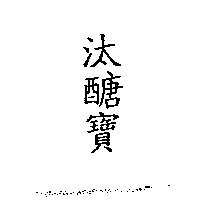 汰醣寶